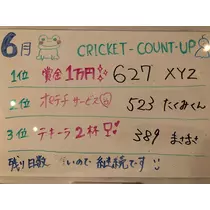 6月 CRICKET-COUNT-UP
1位 賞金1万円 627 XYZ
2位 ポテチサービス 523 たくみくん
3位 テキーラ2杯 389 まさき
残り日数 いので継続です